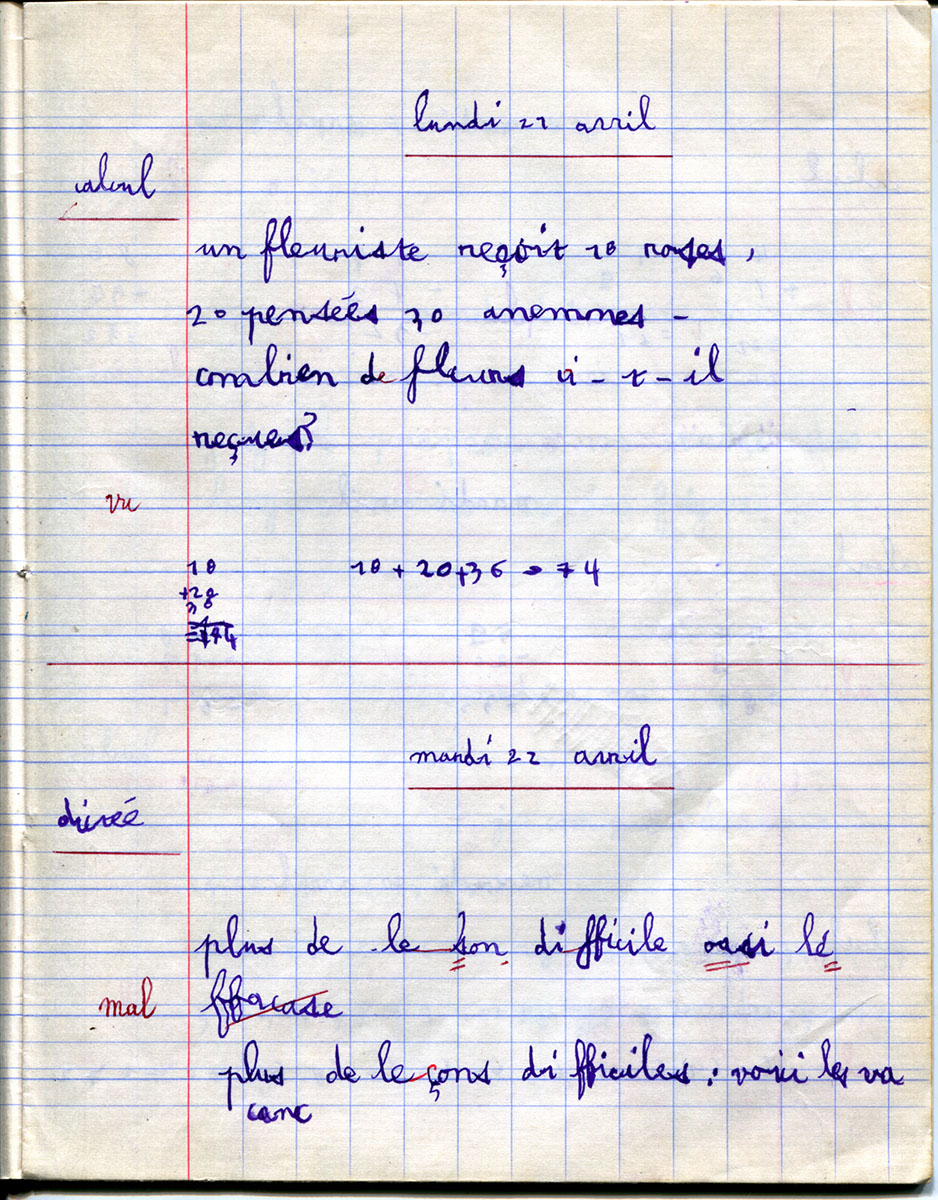 lundi 22 avril
calcul
un fleuriste reçoit 18 roses,
20 pensées 30 anemmnes -
combien de fleurs a - t - il
reçues?
vu
18 18 + 20 + 36 = 74
+20
mardi 22 avril
dicée
plus de le son difficile oasi lé
mal ffacase
plus de leçons difficiles : voici les va
canc